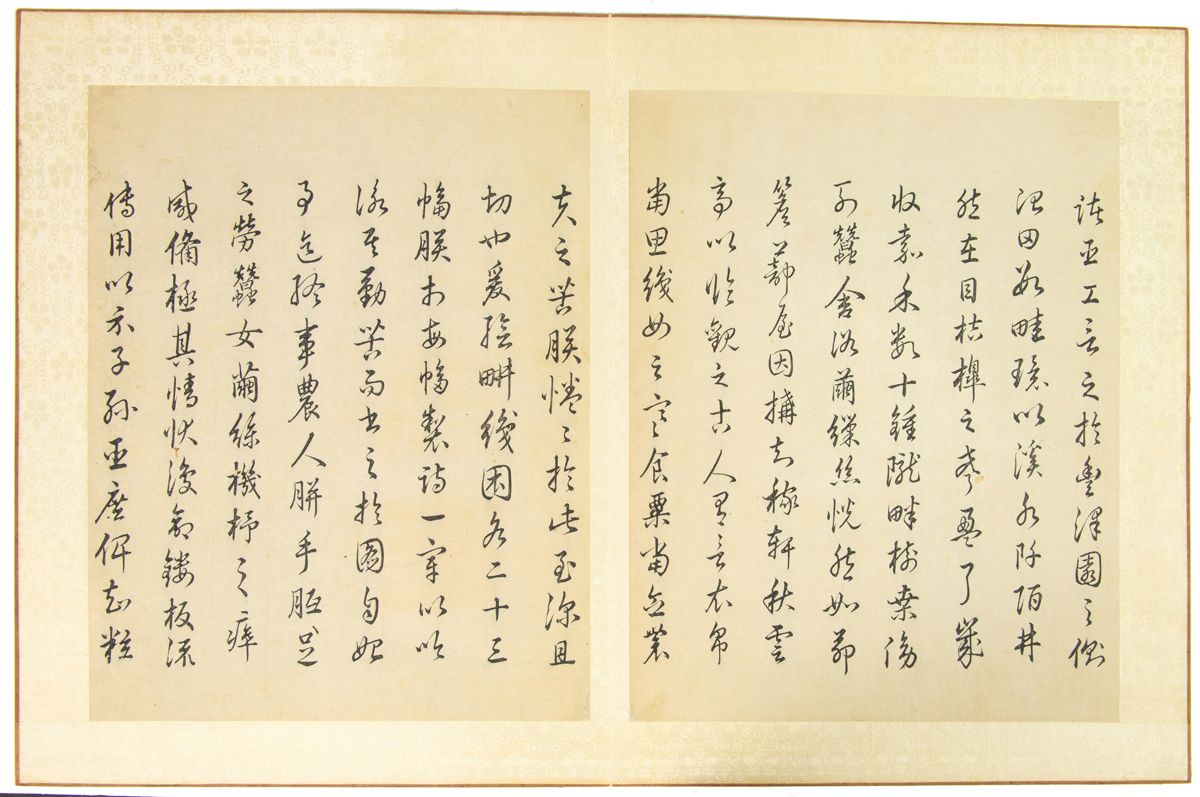 諸臣工言之於豐澤園之側
治田數畦環以溪水阡陌井
然在目桔槔之聲盈耳歲
收嘉禾數十鍾隴畔樹桑傍
列蠶舍浴繭繅絲恍然如茆
簷蔀屋因搆知稼軒秋雲
亭以臨觀之古人有言衣帛
當思織女之寒食粟當念農
夫之苦朕惓〻於此至深且
切也爰繪畊織圖各二十三
幅朕於每幅製詩一章以吟
詠其勤苦而書之於圖自始
事迄終事農人胼手胝足
之勞蠶女繭絲機杼之瘁
咸備極其情狀復命鏤板流
傳用以示子孫臣庶俾知粒